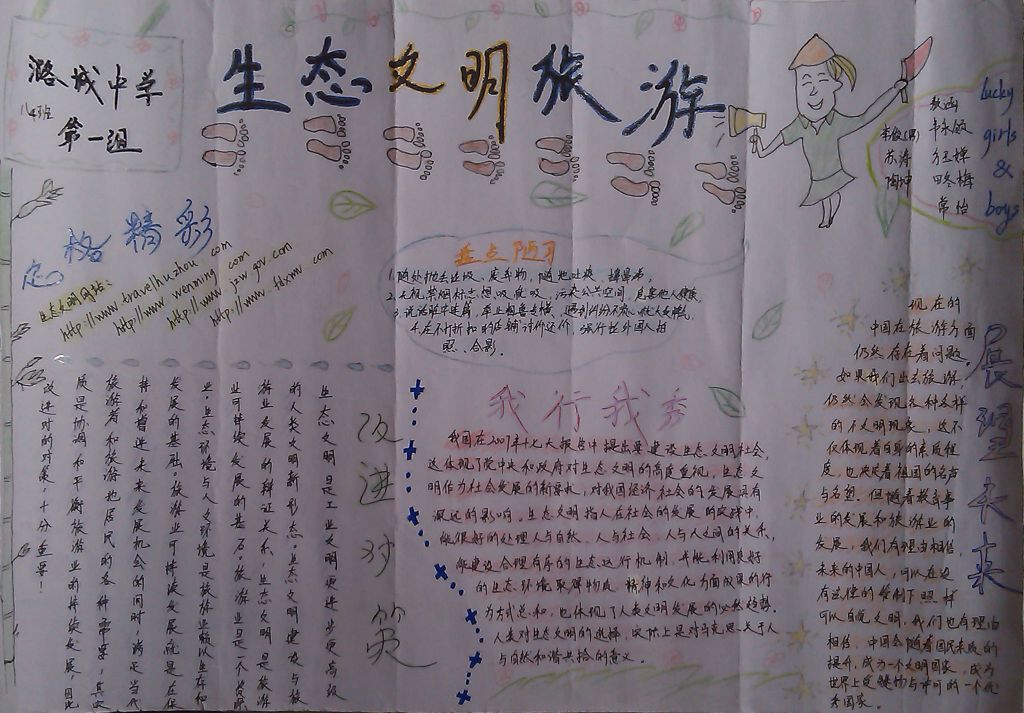 潞城中学
八4班
第一组
生态文明旅游
lucky
girls
&
boys
苏涛
田冬梅
常怡
定格精彩
生态文明网站:
http://www.travelhuzhou.com
http://www.wenming.com
http://www.jsw.gov.com
盘点陋习
1.随处抛丢垃圾、废弃物,随地吐痰、擤鼻涕,
2.无视禁烟标志想吸就吸,污染公共空间,危害他人健康
4.在不打折扣的店铺讨价还价,强行拉外国人拍
照、合影。
我行我秀
我国在2007年十七大报告中提出要建设生态文明社会,
这体现了党中央和政府对生态文明的高度重视,生态文
明作为社会发展的新要求,对我国经济社会的发展具有
深远的影响,生态文明指人在社会的发展的实践中,
能很好的处理人与自然、人与社会、人与人之间的关系,
能建设合理有序的生态运行机制,并能利用良好
的生态环境取得物质、精神和文化方面成果的行
为方式总和,也体现了人类文明发展的必然趋势。
人类对生态文明的选择,实际上是对马克思关于人
与自然和谐共抬的意义。
改进妙策
生态文明是工业文明演进步向高级
的人类文明新形态,生态文明建设与旅
游业发展的辩证关系,生态文明是旅游
业可持续发展的基石,旅游业是不
业,生态环境与人文环境是旅游业赖以生存和
发展的基础,旅游业可持续发展就是在保
持和增进未来发展机会的同时,满足当代
旅游者和旅游地居民的各种需要,其实
质是协调和平衡旅游业的持续发展,因此
改进时的对策,十分重要!
展望未来
现在的
中国在旅游方面
仍然存在着问题。
如果我们出去旅游,
仍然会发现各种各样
的不文明现象,这不
仅体现着自身的素质程
度,也决定着祖国的名声
与名望。但随着教育事
业的发展和旅游业的
发展,我们有理由相信,
未来的中国人,可以在没
有法律的管制下照样
可以自觉文明,我们也有理由
相信,中国会随着国民素质的
提升,成为一个文明国家,成为
世界上受赞扬与许可的一个优
秀国家。